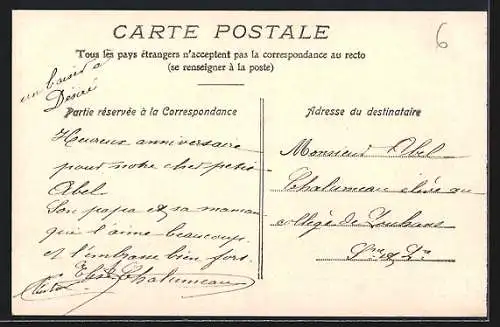 CARTE POSTALE
6
Tous les pays étrangers n'acceptent pas la correspondance au recto
(se renseigner à la poste)
un baiser à
Désiré
Partie réservée à la Correspondance
Heureux anniversaire
pour notre cher petit
Abel.
Son papa et sa maman
qui l'aime beaucoup.
et l'embrasse bien fort.
Elise Chalumeau
Adresse du destinataire
Monsieur Abel
Chalumeau élève au
collège de Louhans
S.ne & L.re